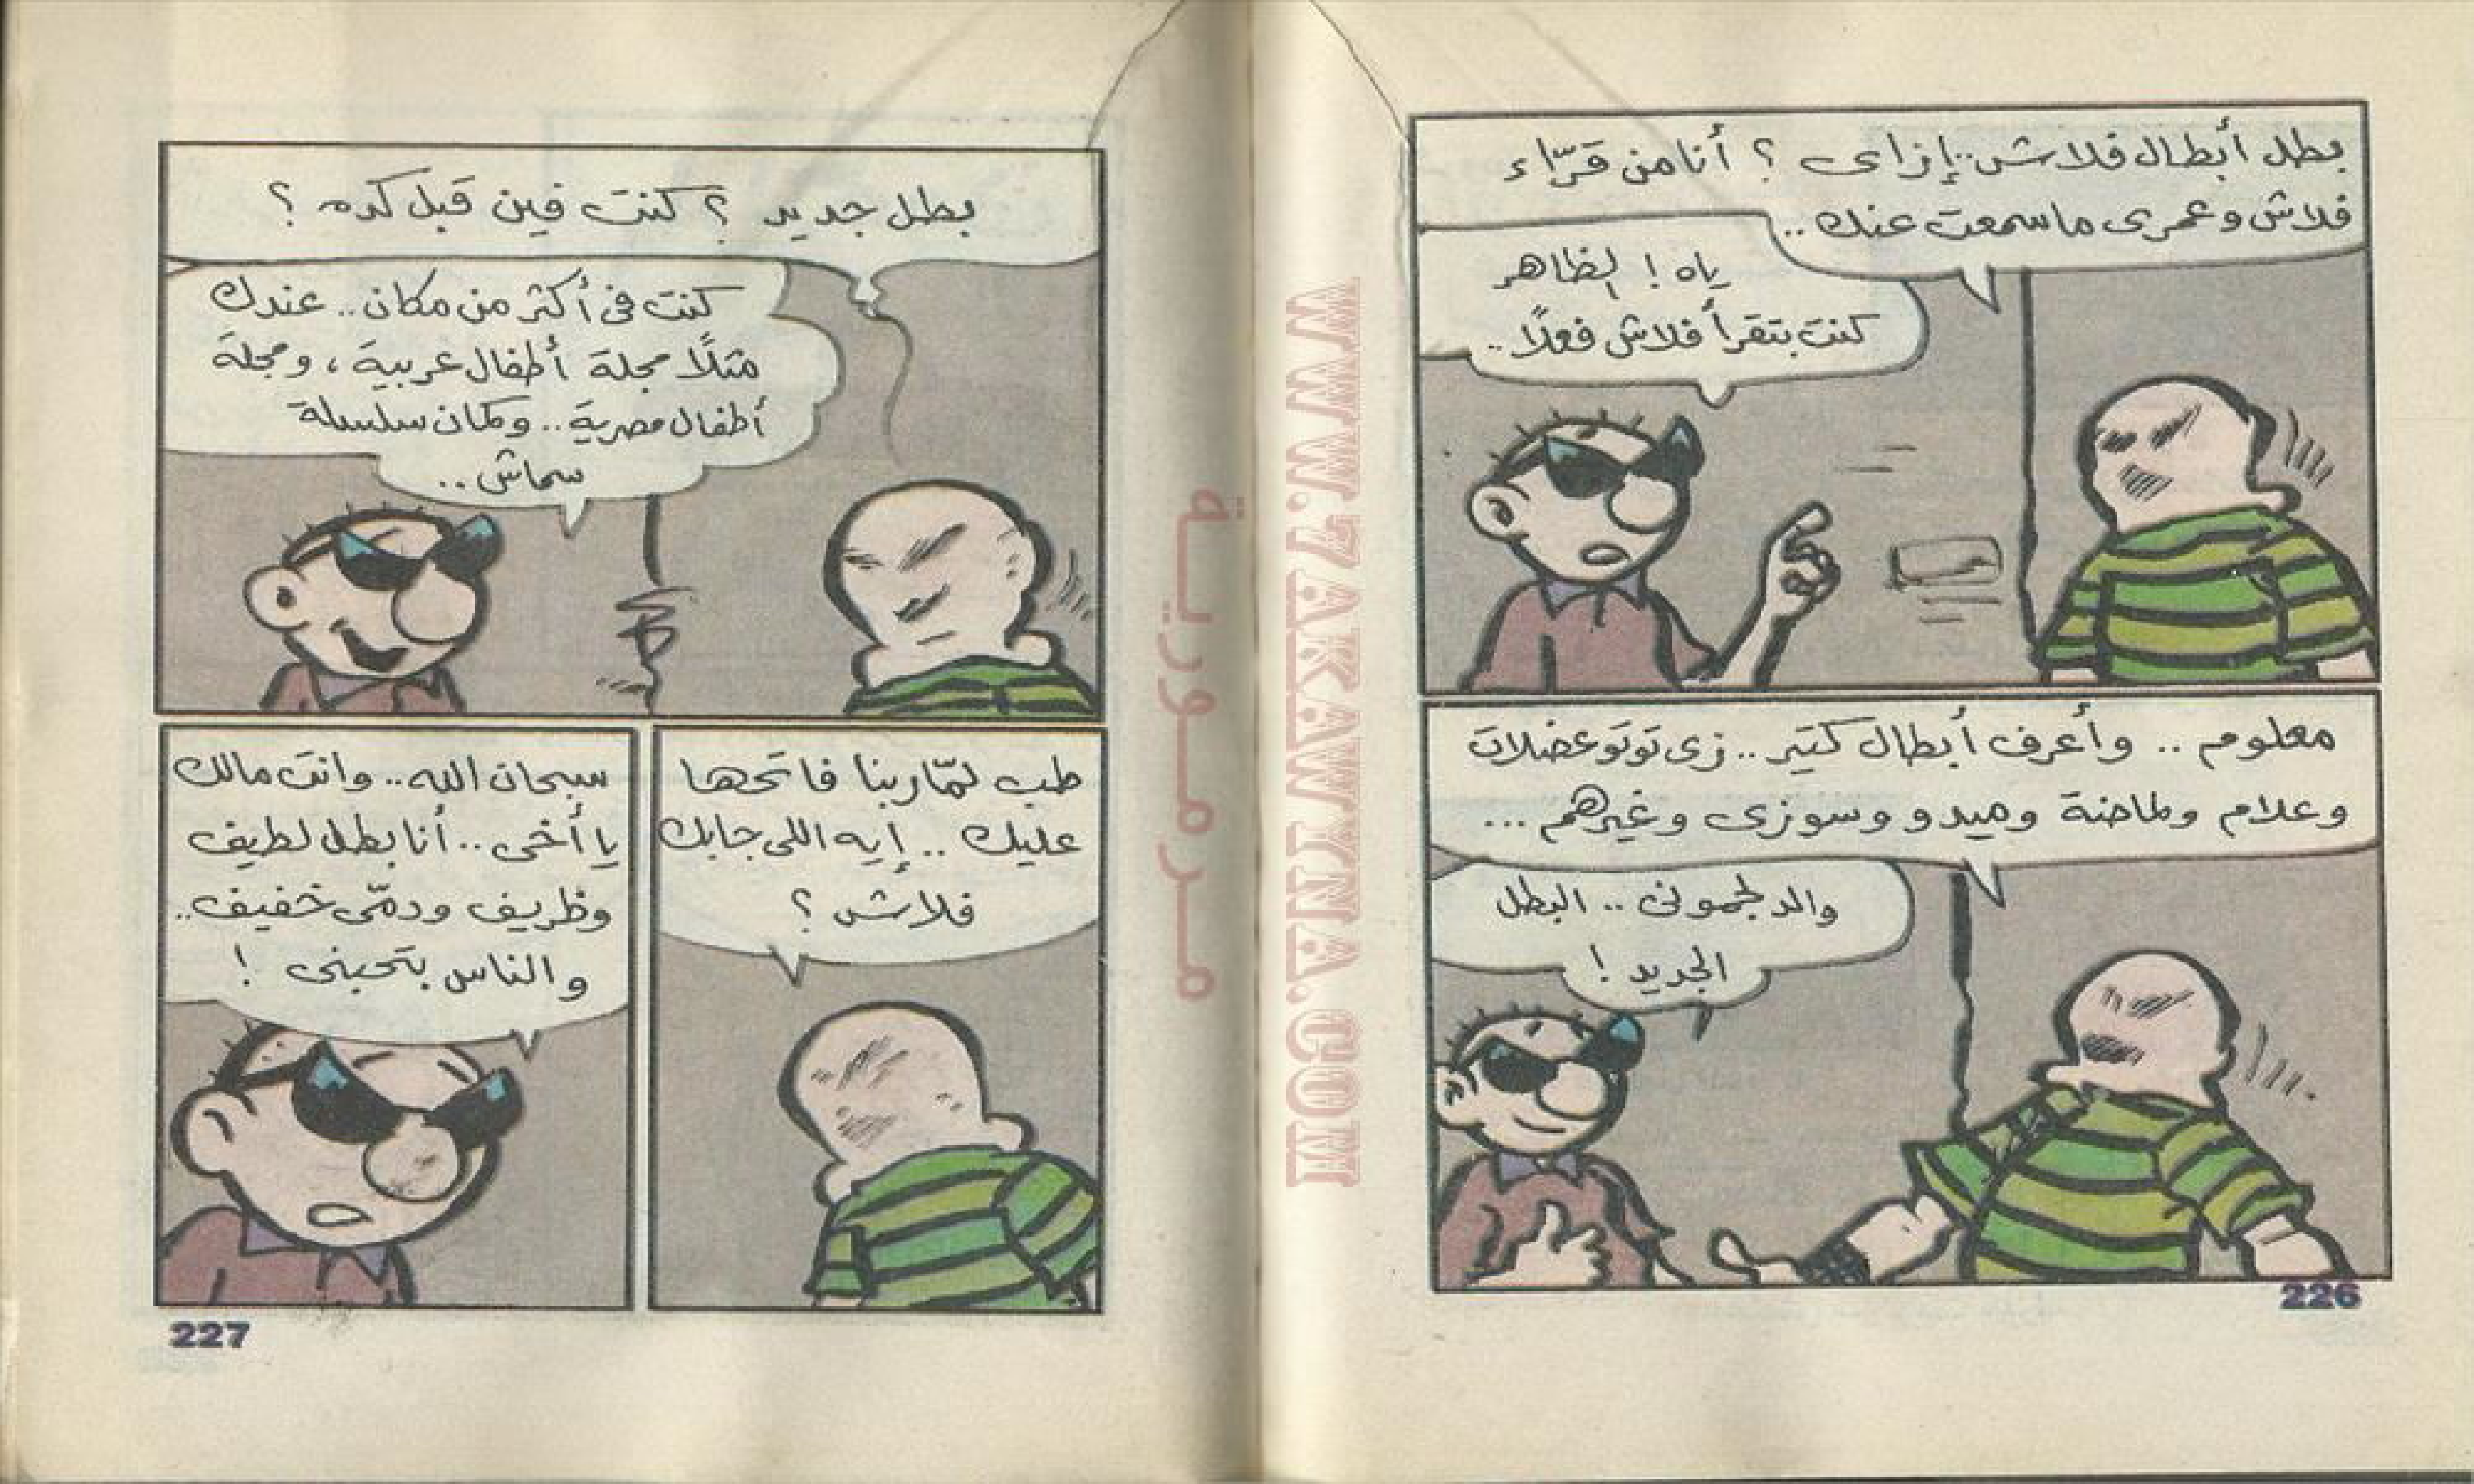 بطل أبطال فلاش..إزاى ؟ أنا من قرّاء
فلاش وعمرى ما سمعت عنك..
ياه ! الظاهر
كنت بتقرأ فلاش فعلًا..
معلوم .. وأعرف أبطال كتير.. زى توتو عضلات
وعلام ولماضة وميدو وسوزى وغيرهم ...
والد لجمونى .. البطل
الجديد !
226
بطل جديد ؟ كنت فين قبل كده ؟
كنت فى أكثر من مكان.. عندك
مثلًا مجلة أطفال عربية، ومجلة
أطفال مصرية.. وكمان سلسلة
سماش..
طب لمّا ربنا فاتحها
عليك .. إيه اللى جابك
فلاش ؟
سبحان الله.. وانت مالك
يا أخى.. أنا بطل لطيف
وظريف ودمّى خفيف..
والناس بتحبنى !
227
مـرمـوريـة
WWW.7AKAWEYNA.COM